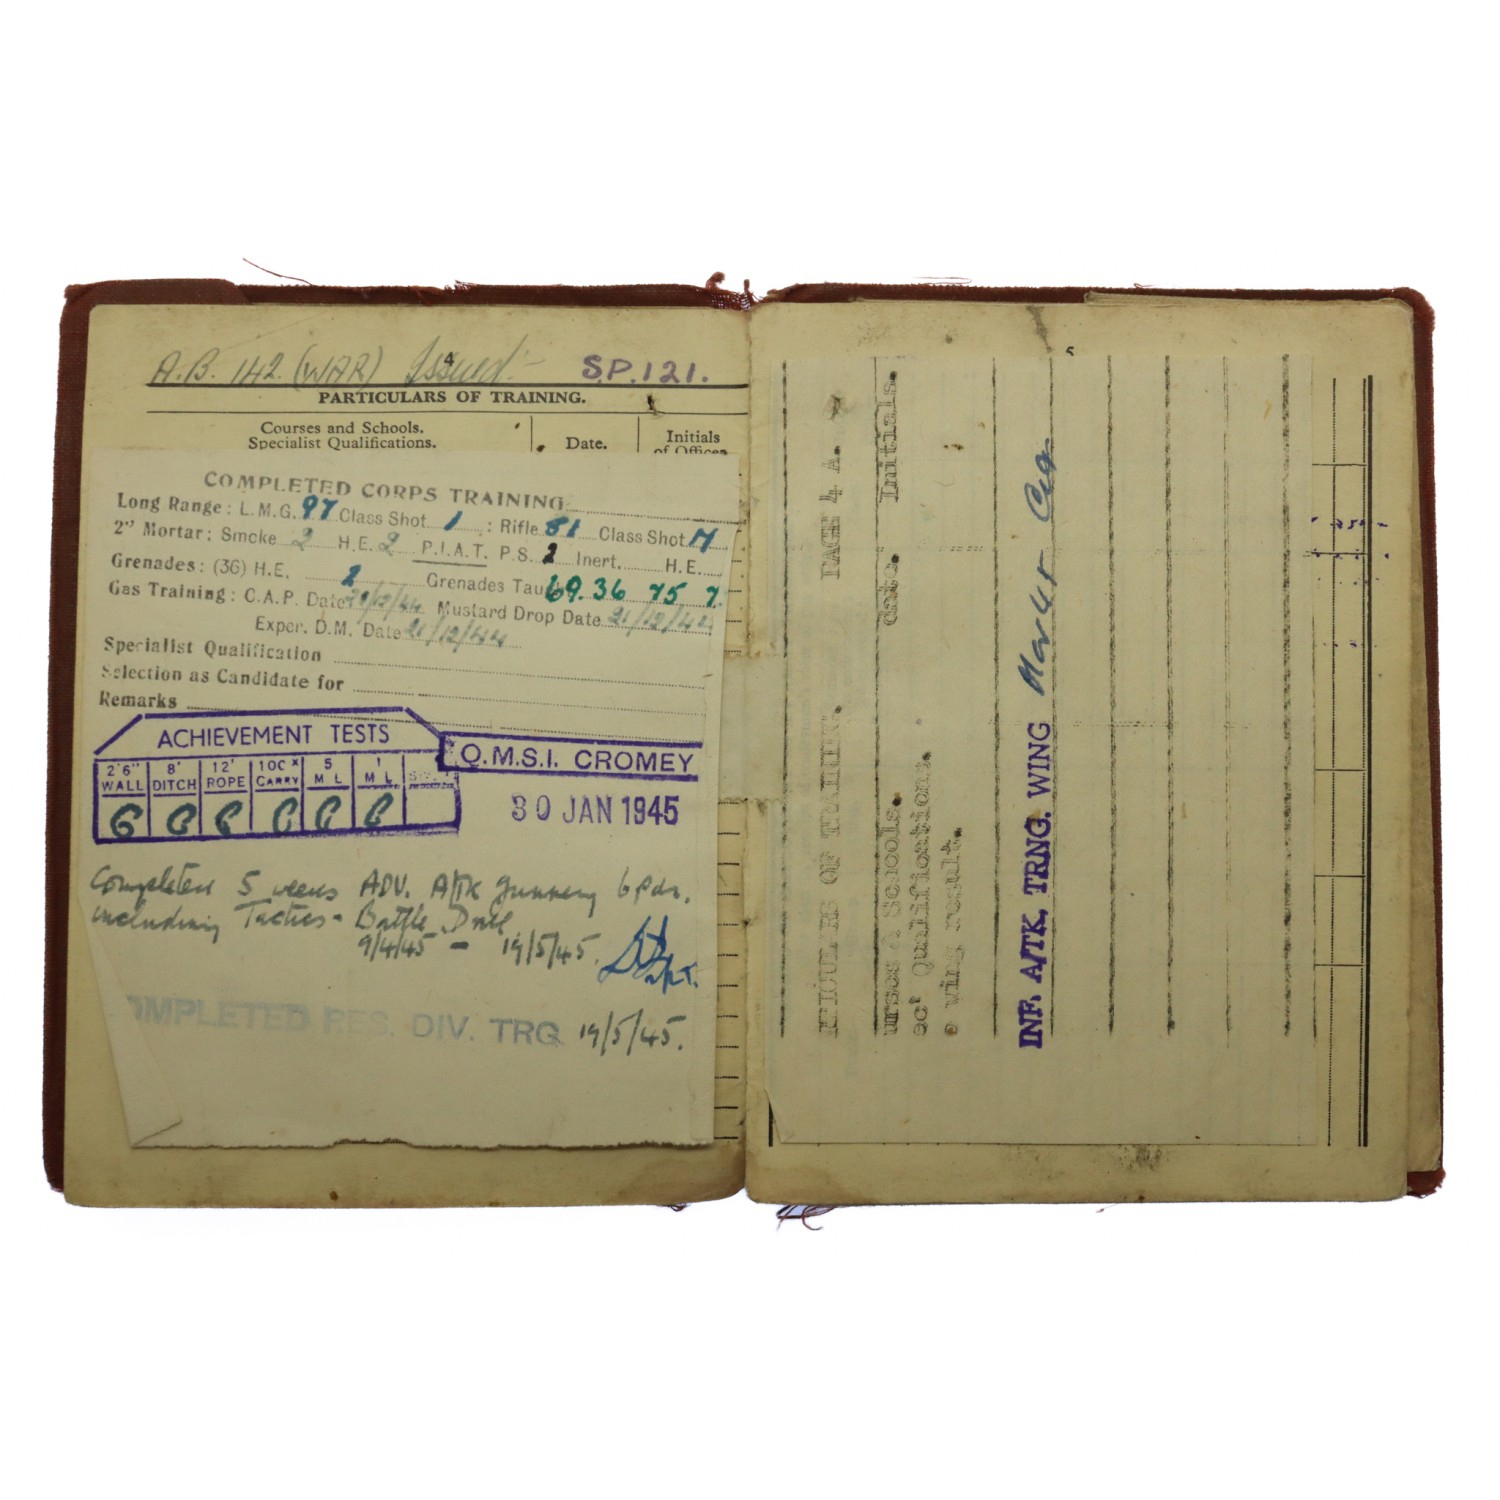 4
A.B. 142 (WAR) Issued:- S.P.121.
PARTICULARS OF TRAINING.
Courses and Schools.
Specialist Qualifications.
Date.
Initials
of Officer
COMPLETED CORPS TRAINING
Long Range: L.M.G. 97 Class Shot 1 : Rifle 81 Class Shot M
2" Mortar: Smoke 2 H.E. 2 P.I.A.T. P.S. 2 Inert. H.E.
Grenades: (36) H.E. 2 Grenades Tau 69. 36 75 7
Gas Training: C.A.P. Date 21/12/44 Mustard Drop Date 21/12/44
Exper. D.M. Date 21/12/44
Specialist Qualification
Selection as Candidate for
Remarks
ACHIEVEMENT TESTS
2'6" WALL 8' DITCH 12' ROPE 100 x CARRY 5 ML 1 ML
G G G G G G
Q.M.S.I. CROMEY
30 JAN 1945
Completed 5 weeks ADV. A/TK gunnery 6 pdr.
including Tactics - Battle Drill
9/4/45 - 19/5/45.
OMPLETED RES. DIV. TRG 19/5/45.
5
RTICULARS OF TRAINING. PAGE 4 A.
urses & Schools. date. Initials.
ec' Qualifications.
e wing result.
INF. A/TK. TRNG. WING